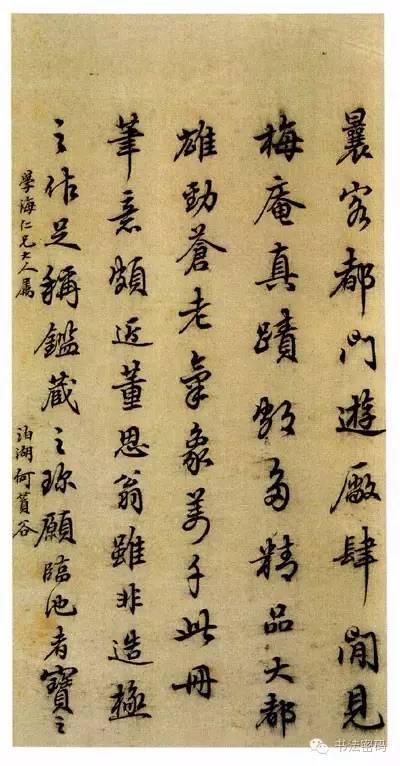 曩客都門遊廠肆間見
梅庵真蹟頗多精品大都
雄勁蒼老氣象萬千此冊
筆意頗近董思翁雖非造極
之作足稱鑑藏之珍願臨池者寶之
學海仁兄大人属
泊湖何蕒谷
书法密码